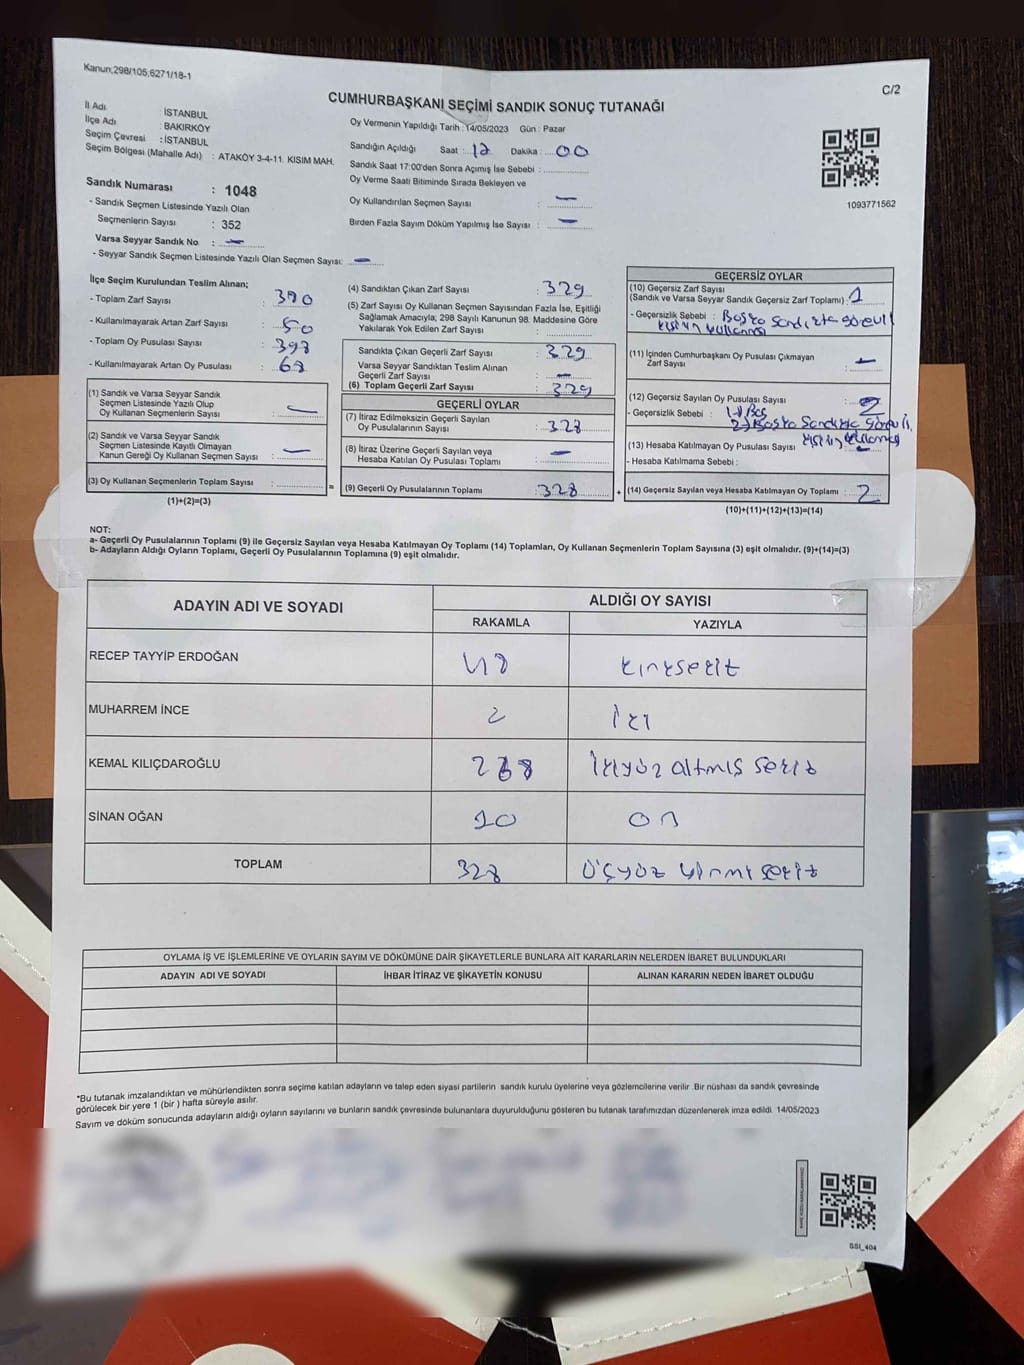 Kanun;298/105;6271/18-1
C/2
CUMHURBAŞKANI SEÇİMİ SANDIK SONUÇ TUTANAĞI
İl Adı : İSTANBUL
İlçe Adı : BAKIRKÖY
Seçim Çevresi : İSTANBUL
Seçim Bölgesi (Mahalle Adı) : ATAKÖY 3-4-11. KISIM MAH.
Sandık Numarası : 1048
- Sandık Seçmen Listesinde Yazılı Olan
Seçmenlerin Sayısı : 352
Varsa Seyyar Sandık No : —
- Seyyar Sandık Seçmen Listesinde Yazılı Olan Seçmen Sayısı: —
Oy Vermenin Yapıldığı Tarih : 14/05/2023 Gün : Pazar
Sandığın Açıldığı Saat : 17 Dakika : 00
Sandık Saat 17:00'den Sonra Açımış İse Sebebi :
Oy Verme Saati Bitiminde Sırada Bekleyen ve
Oy Kullandırılan Seçmen Sayısı : —
Birden Fazla Sayım Döküm Yapılmış İse Sayısı : —
1093771562
İlçe Seçim Kurulundan Teslim Alınan;
- Toplam Zarf Sayısı : 390
- Kullanılmayarak Artan Zarf Sayısı : 50
- Toplam Oy Pusulası Sayısı : 398
- Kullanılmayarak Artan Oy Pusulası : 68
(1) Sandık ve Varsa Seyyar Sandık
Seçmen Listesinde Yazılı Olup
Oy Kullanan Seçmenlerin Sayısı : —
(2) Sandık ve Varsa Seyyar Sandık
Seçmen Listesinde Kayıtlı Olmayan
Kanun Gereği Oy Kullanan Seçmen Sayısı : —
(3) Oy Kullanan Seçmenlerin Toplam Sayısı :
(1)+(2)=(3)
(4) Sandıktan Çıkan Zarf Sayısı : 329
(5) Zarf Sayısı Oy Kullanan Seçmen Sayısından Fazla İse, Eşitliği
Sağlamak Amacıyla; 298 Sayılı Kanunun 98. Maddesine Göre
Yakılarak Yok Edilen Zarf Sayısı :
Sandıkta Çıkan Geçerli Zarf Sayısı : 329
Varsa Seyyar Sandıktan Teslim Alınan
Geçerli Zarf Sayısı : —
(6) Toplam Geçerli Zarf Sayısı : 329
GEÇERLİ OYLAR
(7) İtiraz Edilmeksizin Geçerli Sayılan
Oy Pusulalarının Sayısı : 328
(8) İtiraz Üzerine Geçerli Sayılan veya
Hesaba Katılan Oy Pusulası Toplamı : —
= (9) Geçerli Oy Pusulalarının Toplamı : 328
GEÇERSİZ OYLAR
(10) Geçersiz Zarf Sayısı
(Sandık ve Varsa Seyyar Sandık Geçersiz Zarf Toplamı) : 1
- Geçersizlik Sebebi : Başka Sandıkta görevli
kişinin kullanması
(11) İçinden Cumhurbaşkanı Oy Pusulası Çıkmayan
Zarf Sayısı : —
(12) Geçersiz Sayılan Oy Pusulası Sayısı : 2
- Geçersizlik Sebebi : 1-) Boş
2-) Başka Sandıkta görevli
kişinin kullanması
(13) Hesaba Katılmayan Oy Pusulası Sayısı : —
- Hesaba Katılmama Sebebi :
+ (14) Geçersiz Sayılan veya Hesaba Katılmayan Oy Toplamı : 2
(10)+(11)+(12)+(13)=(14)
NOT:
a- Geçerli Oy Pusulalarının Toplamı (9) ile Geçersiz Sayılan veya Hesaba Katılmayan Oy Toplamı (14) Toplamları, Oy Kullanan Seçmenlerin Toplam Sayısına (3) eşit olmalıdır. (9)+(14)=(3)
b- Adayların Aldığı Oyların Toplamı, Geçerli Oy Pusulalarının Toplamına (9) eşit olmalıdır.
ADAYIN ADI VE SOYADI ALDIĞI OY SAYISI
RAKAMLA YAZIYLA
RECEP TAYYİP ERDOĞAN 48 kırksekiz
MUHARREM İNCE 2 iki
KEMAL KILIÇDAROĞLU 268 ikiyüz altmış sekiz
SİNAN OĞAN 10 on
TOPLAM 328 üçyüz yirmi sekiz
OYLAMA İŞ VE İŞLEMLERİNE VE OYLARIN SAYIM VE DÖKÜMÜNE DAİR ŞİKAYETLERLE BUNLARA AİT KARARLARIN NELERDEN İBARET BULUNDUKLARI
ADAYIN ADI VE SOYADI İHBAR İTİRAZ VE ŞİKAYETİN KONUSU ALINAN KARARIN NEDEN İBARET OLDUĞU
*Bu tutanak imzalandıktan ve mühürlendikten sonra seçime katılan adayların ve talep eden siyasi partilerin sandık kurulu üyelerine veya gözlemcilerine verilir .Bir nüshası da sandık çevresinde
görülecek bir yere 1 (bir ) hafta süreyle asılır.
Sayım ve döküm sonucunda adayların aldığı oyların sayılarını ve bunların sandık çevresinde bulunanlara duyurulduğunu gösteren bu tutanak tarafımızdan düzenlenerek imza edildi. 14/05/2023
SSI_404